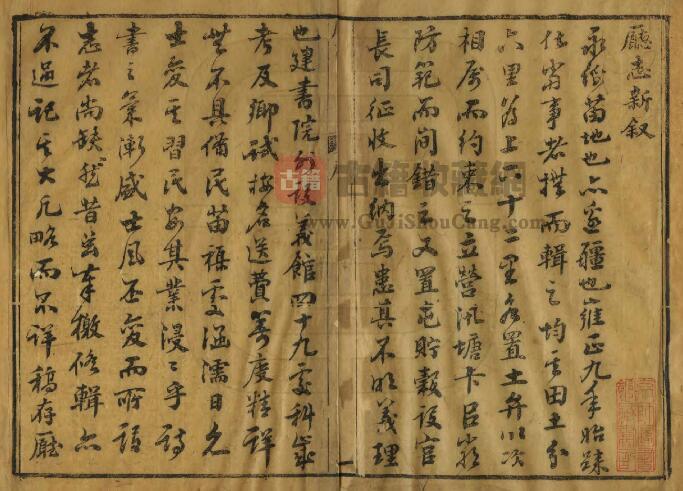 廳志新叙
永綏苗地也亦邊疆也雍正九年始隸
當事者撫而輯之均其田土分
六里為上下十二里各置土弁以次
相屬而約束之立營汛塘卡
防範而間錯之又置倉貯穀設官
長司征收出納焉患其不明義理
也建書院外設義館四十九處科歲
考及鄉試按名送費籌度精詳
無不具備民苗處涵濡日久
士愛其習民安其業浸〻乎詩
書之氣漸盛士風丕變而所謂
志者尚缺然昔奉檄修輯亦
不過記其大凡略而不詳稿存廳
古籍
古籍收藏網
www.GuJiShouCang.com